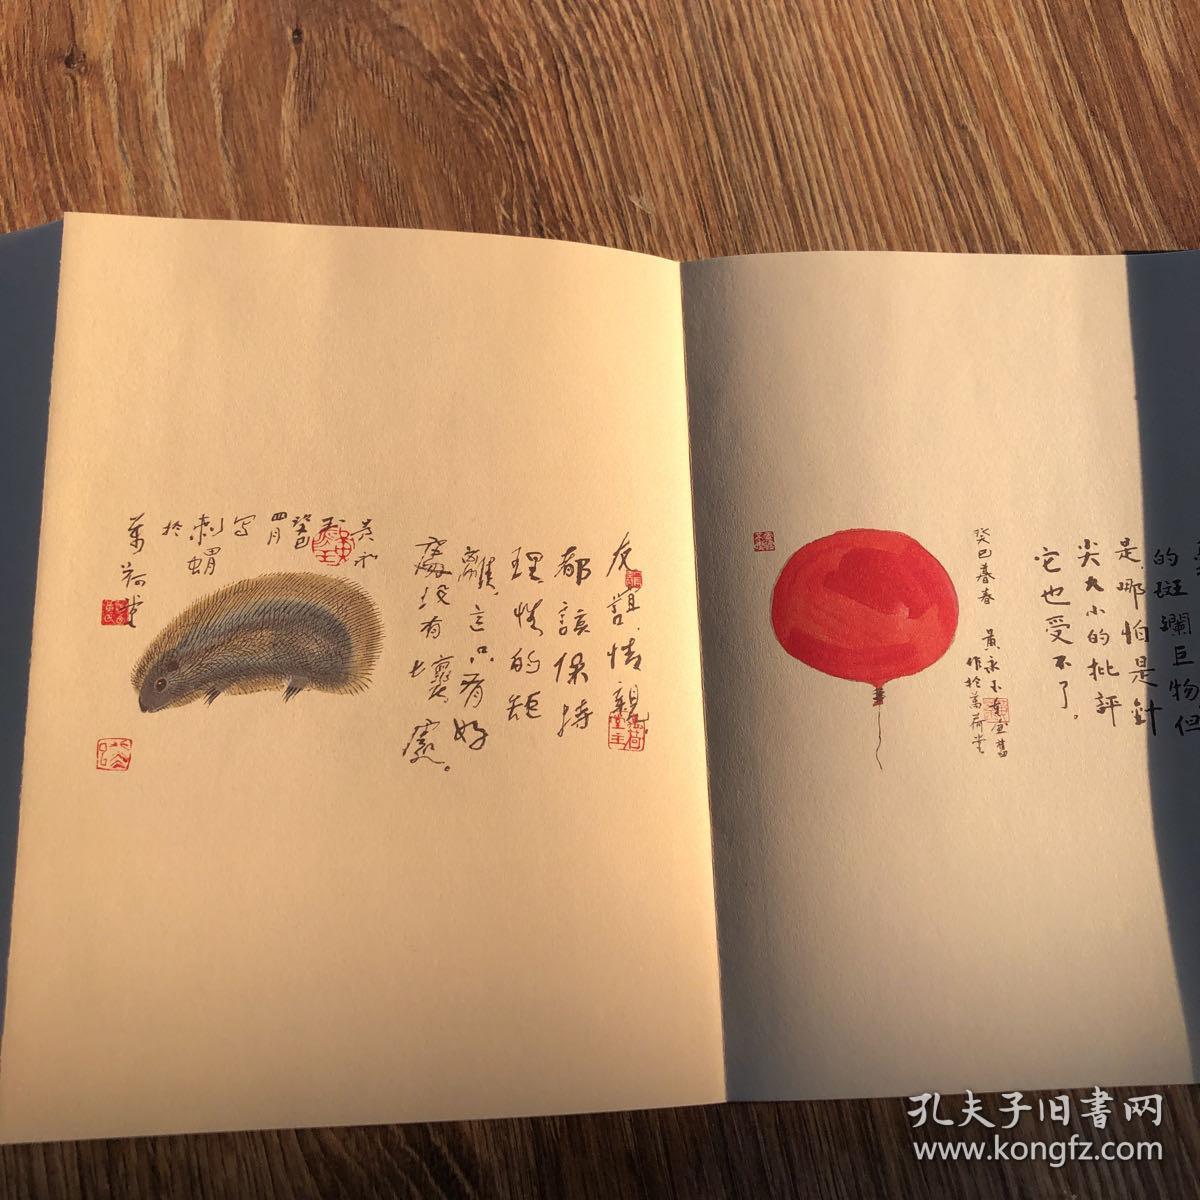 友誼,情親,
都該保持
理性的距
離,這只有好
處没有壞處。
黄永玉
癸巳
四月
写
刺蝟
於
萬荷堂
的斑斕巨物但
是,哪怕是針
尖大小的批評
它也受不了。
癸巳暮春 黄永玉
作於萬荷堂
孔夫子旧書网
www.kongfz.com